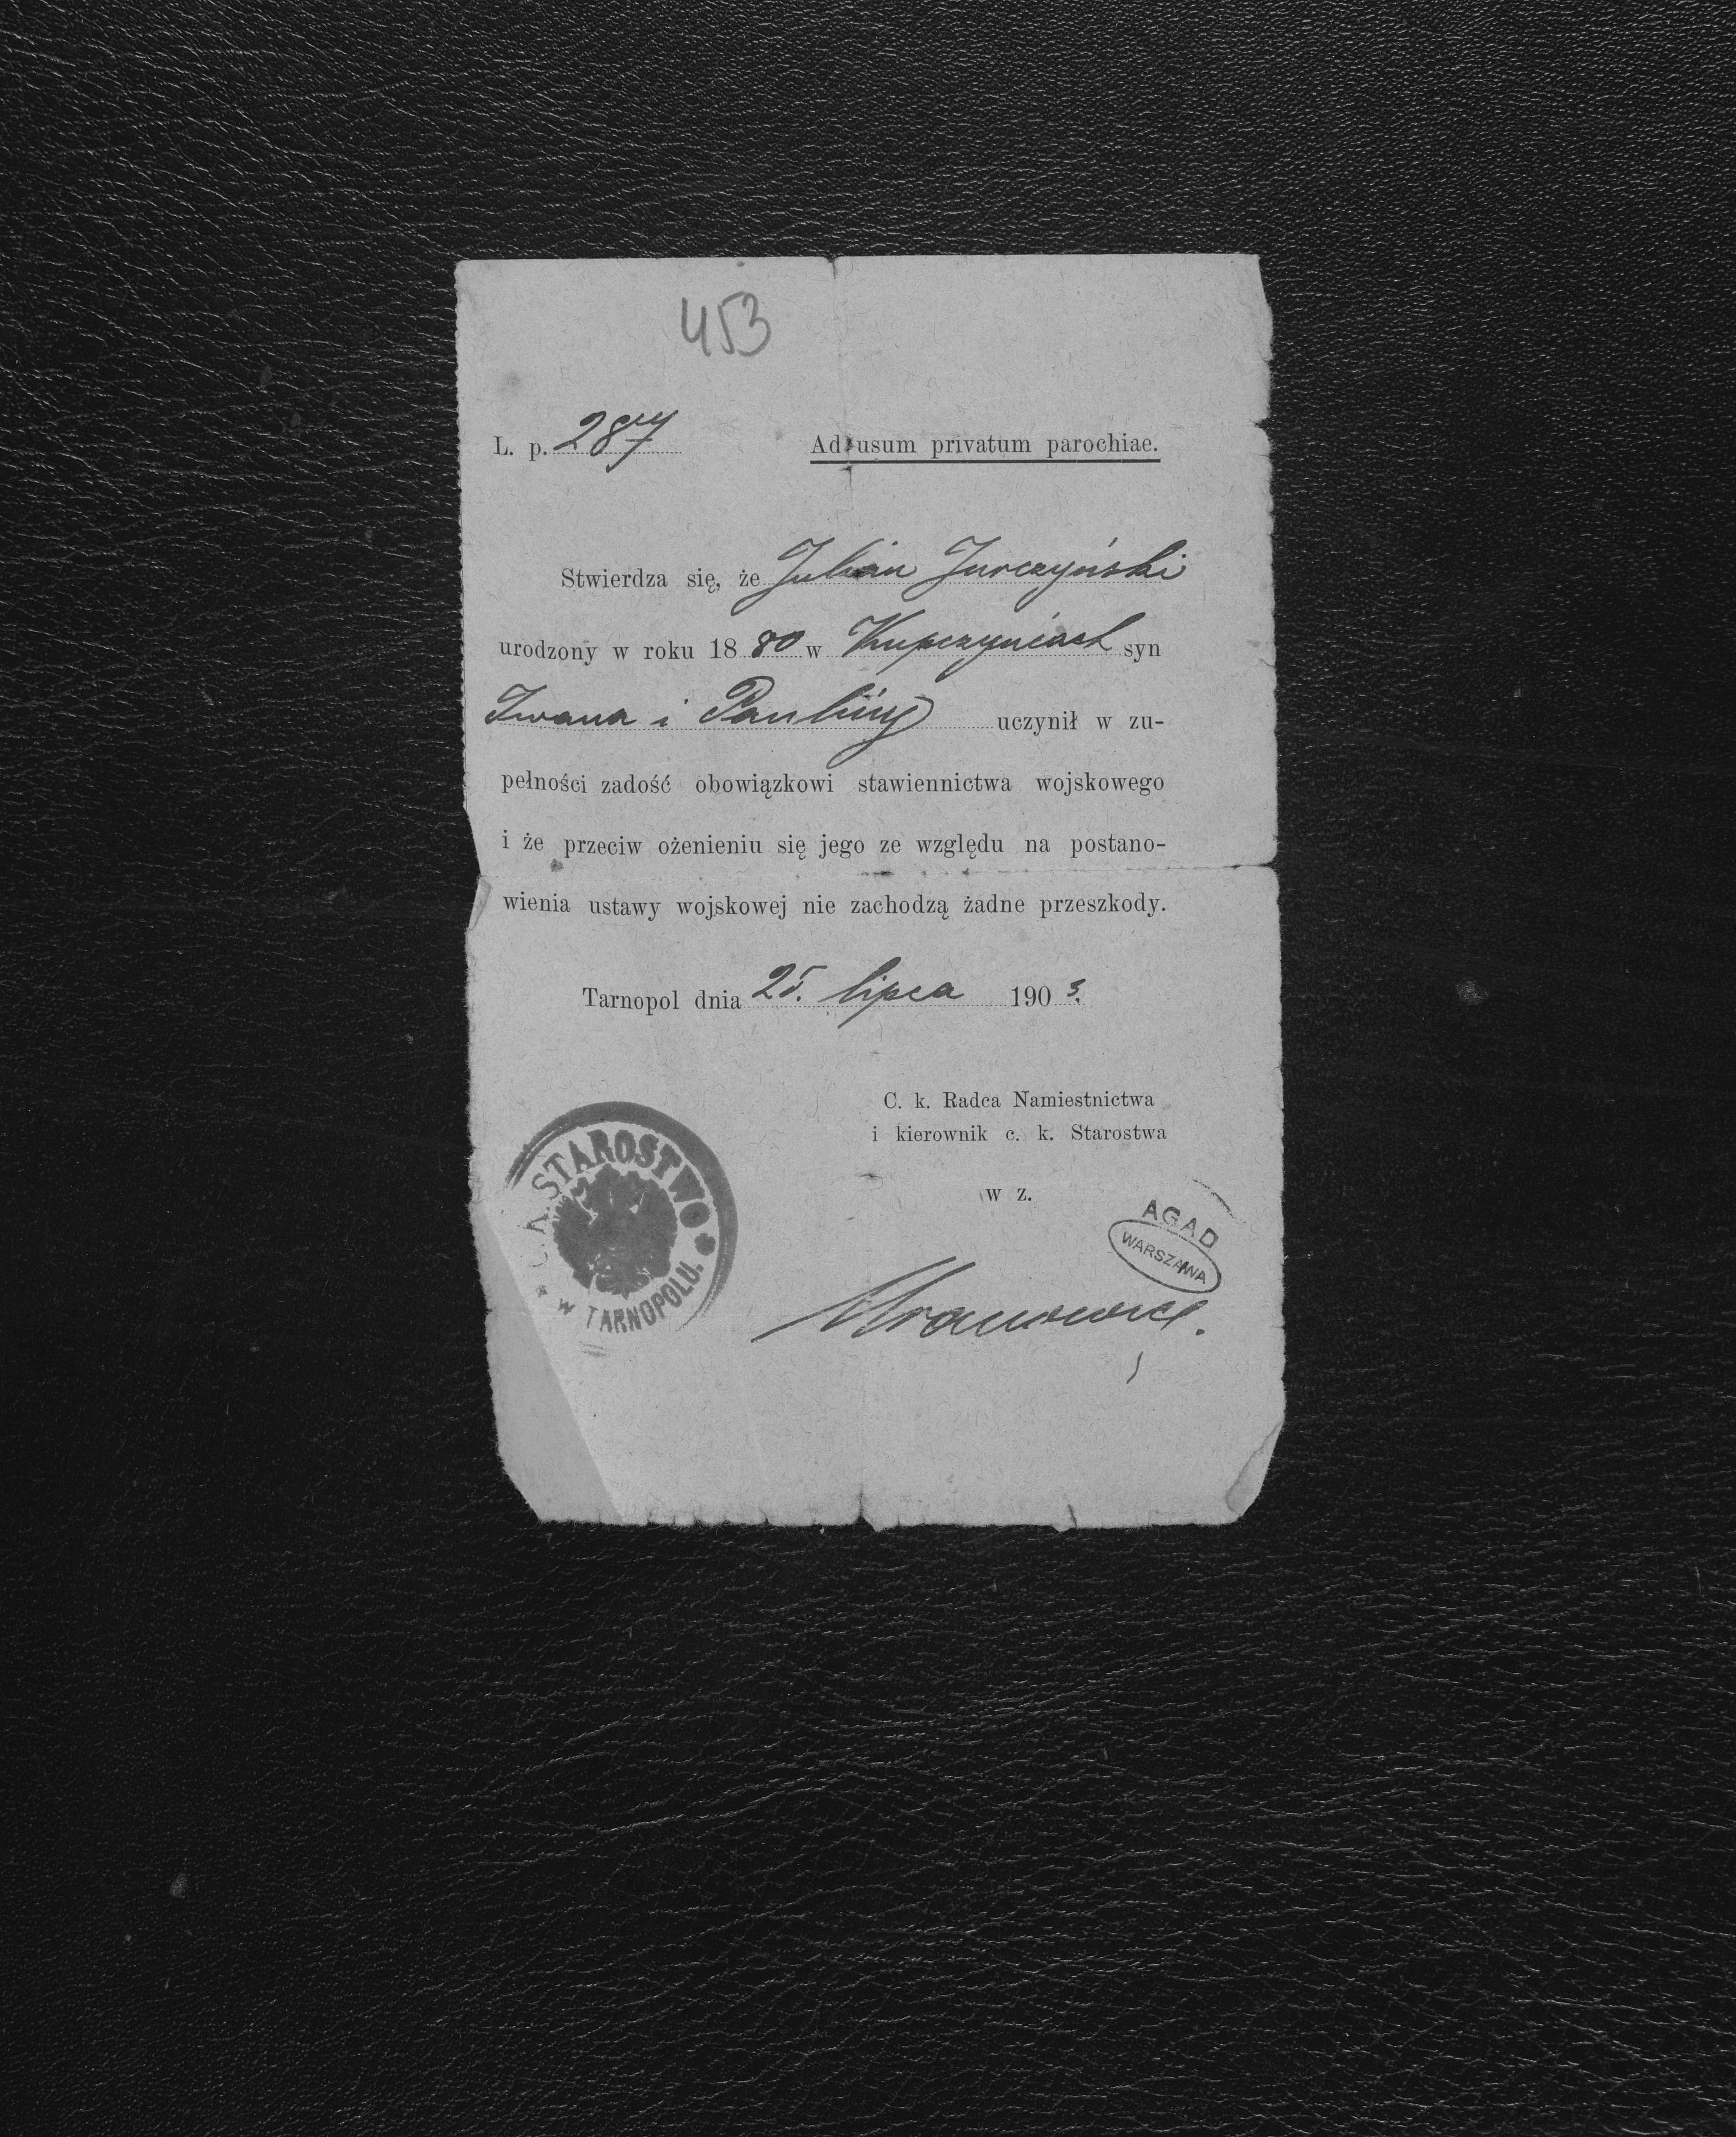 453
L. p. 287
Ad usum privatum parochiae.
Stwierdza się, że Julian Jurczyński
urodzony w roku 1880 w Kupczyńcach syn
Iwana i Pauliny uczynił w zu-
pełności zadość obowiązkowi stawiennictwa wojskowego
i że przeciw ożenieniu się jego ze względu na postano-
wienia ustawy wojskowej nie zachodzą żadne przeszkody.
Tarnopol dnia 25. lipca 1903.
C. k. Radca Namiestnictwa
i kierownik c. k. Starostwa
w z.
AGAD
WARSZAWA
C. K. STAROSTWO
W TARNOPOLU.